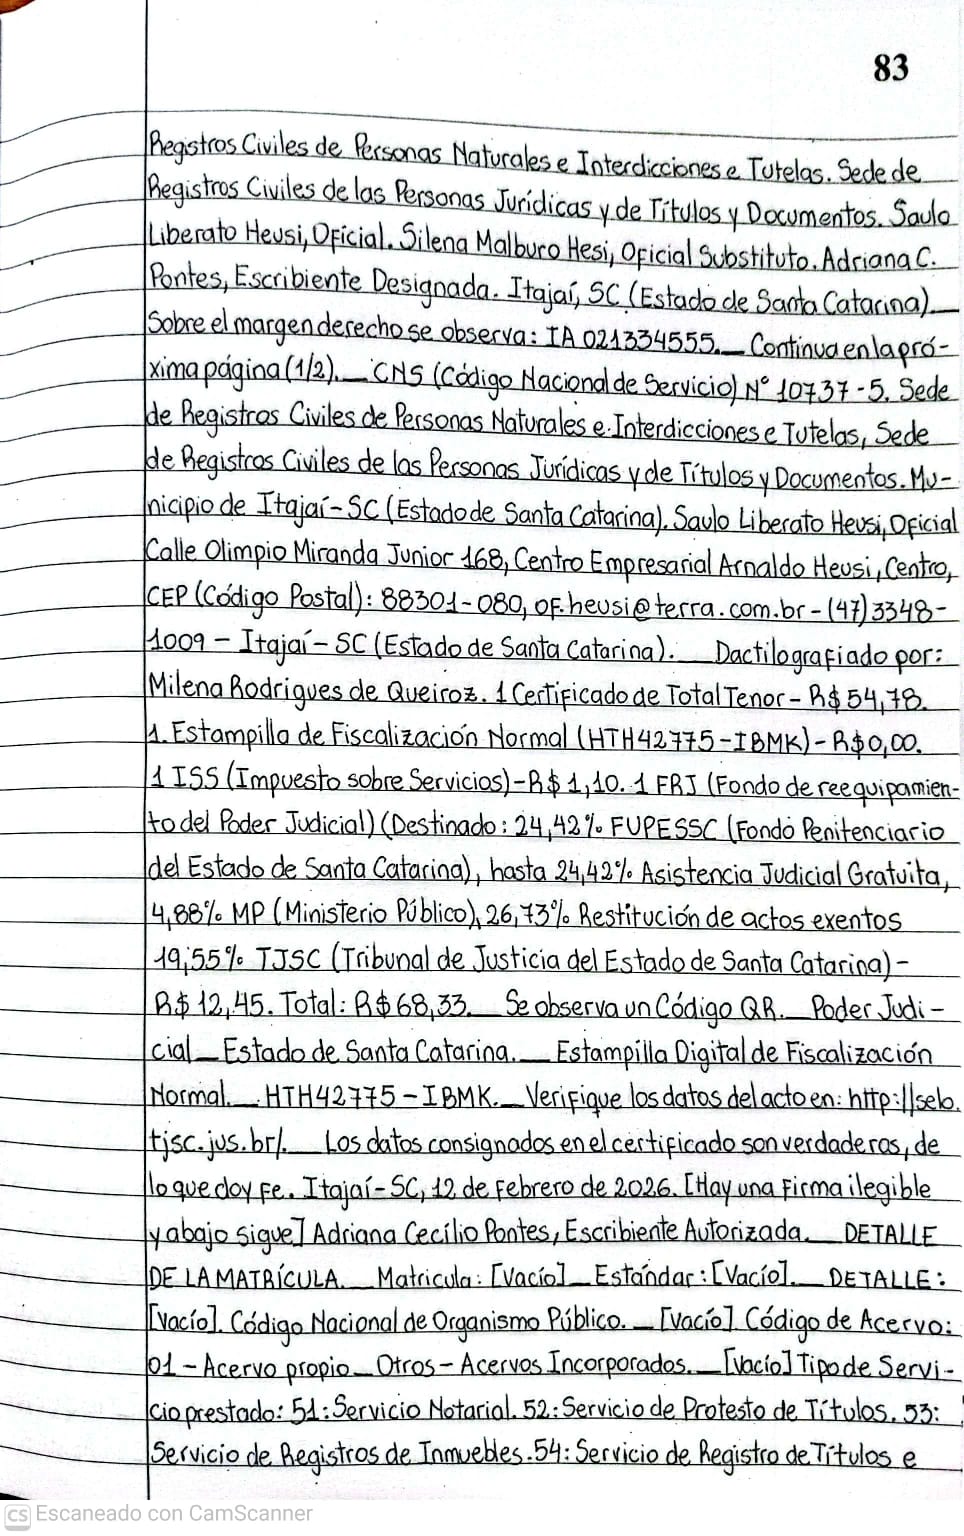 83
Registros Civiles de Personas Naturales e Interdicciones e Tutelas. Sede de
Registros Civiles de las Personas Jurídicas y de Títulos y Documentos. Saulo
Liberato Heusi, Oficial. Silena Malburo Hesi, Oficial Substituto. Adriana C.
Pontes, Escribiente Designada. Itajaí, SC (Estado de Santa Catarina)__
Sobre el margen derecho se observa: IA 021334555.__ Continua en la pró-
xima página (1/2).__ CNS (Código Nacional de Servicio) N° 10737-5. Sede
de Registros Civiles de Personas Naturales e Interdicciones e Tutelas, Sede
de Registros Civiles de las Personas Jurídicas y de Títulos y Documentos. Mu-
nicipio de Itajaí-SC (Estado de Santa Catarina). Saulo Liberato Heusi, Oficial
Calle Olimpio Miranda Junior 168, Centro Empresarial Arnaldo Heusi, Centro,
CEP (Código Postal): 88301-080, of.heusi@terra.com.br-(47)3348-
1009 - Itajaí-SC (Estado de Santa Catarina).__ Dactilografiado por:
Milena Rodrigues de Queiroz. 1 Certificado de Total Tenor - R$ 54,78.
1. Estampilla de Fiscalización Normal (HTH42775-IBMK) - R$0,00.
1 ISS (Impuesto sobre Servicios)-R$ 1,10. 1 FRJ (Fondo de reequipamien-
to del Poder Judicial) (Destinado: 24,42% FUPESSC (Fondo Penitenciario
del Estado de Santa Catarina), hasta 24,42% Asistencia Judicial Gratuita,
4,88% MP (Ministerio Público), 26,73% Restitución de actos exentos
19,55% TJSC (Tribunal de Justicia del Estado de Santa Catarina)-
R$ 12,45. Total: R$ 68,33.__ Se observa un Código QR.__ Poder Judi-
cial__ Estado de Santa Catarina.__ Estampilla Digital de Fiscalización
Normal.__ HTH42775-IBMK.__ Verifique los datos del acto en: http://selo.
tjsc.jus.br/.__ Los datos consignados en el certificado son verdaderos, de
lo que doy fe. Itajaí-SC, 12 de febrero de 2026. [Hay una firma ilegible
y abajo sigue] Adriana Cecílio Pontes, Escribiente Autorizada.__ DETALLE
DE LA MATRÍCULA.__ Matricula: [Vacío]__ Estándar: [Vacío].__ DETALLE:
[Vacío]. Código Nacional de Organismo Público.__ [Vacío] Código de Acervo:
01 - Acervo propio__ Otros - Acervos Incorporados.__ [Vacío] Tipo de Servi-
cio prestado: 51: Servicio Notarial. 52: Servicio de Protesto de Títulos. 53:
Servicio de Registros de Inmuebles. 54: Servicio de Registro de Títulos e
CS Escaneado con CamScanner